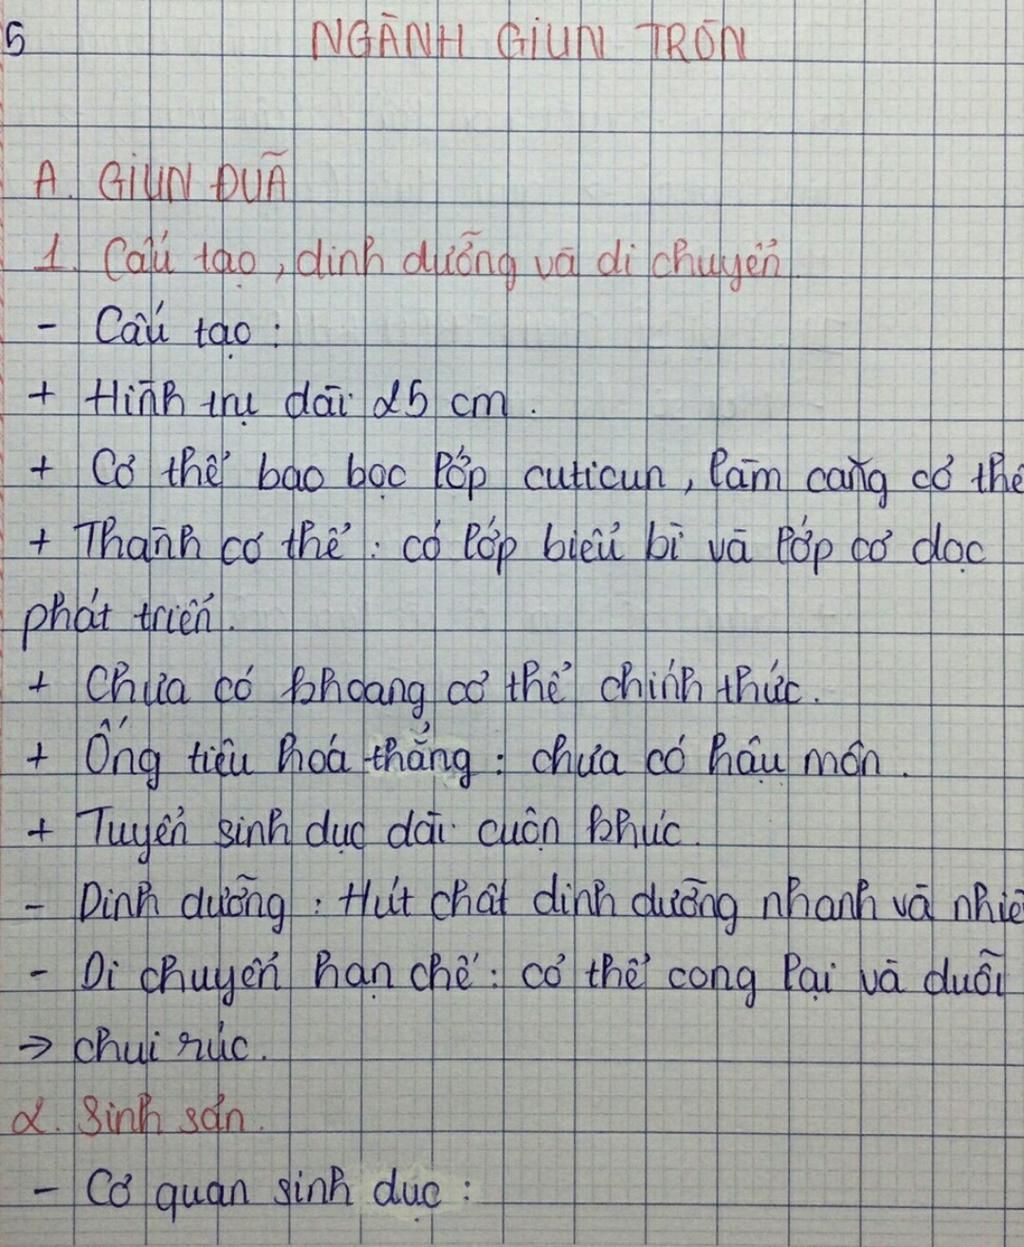 5 NGÀNH GIUN TRÒN
A. GIUN ĐŨA
1. Cấu tạo, dinh dưỡng và di chuyển.
- Cấu tạo:
+ Hình trụ dài 25 cm.
+ Cơ thể bao bọc lớp cuticun, làm căng cơ thể
+ Thành cơ thể: có lớp biểu bì và lớp cơ dọc
phát triển.
+ Chưa có khoang cơ thể chính thức.
+ Ống tiêu hoá thẳng: chưa có hậu môn.
+ Tuyến sinh dục dài cuộn khúc.
- Dinh dưỡng: Hút chất dinh dưỡng nhanh và nhiề
- Di chuyển hạn chế: cơ thể cong lại và duỗi
→ chui rúc.
2. Sinh sản.
- Cơ quan sinh dục: